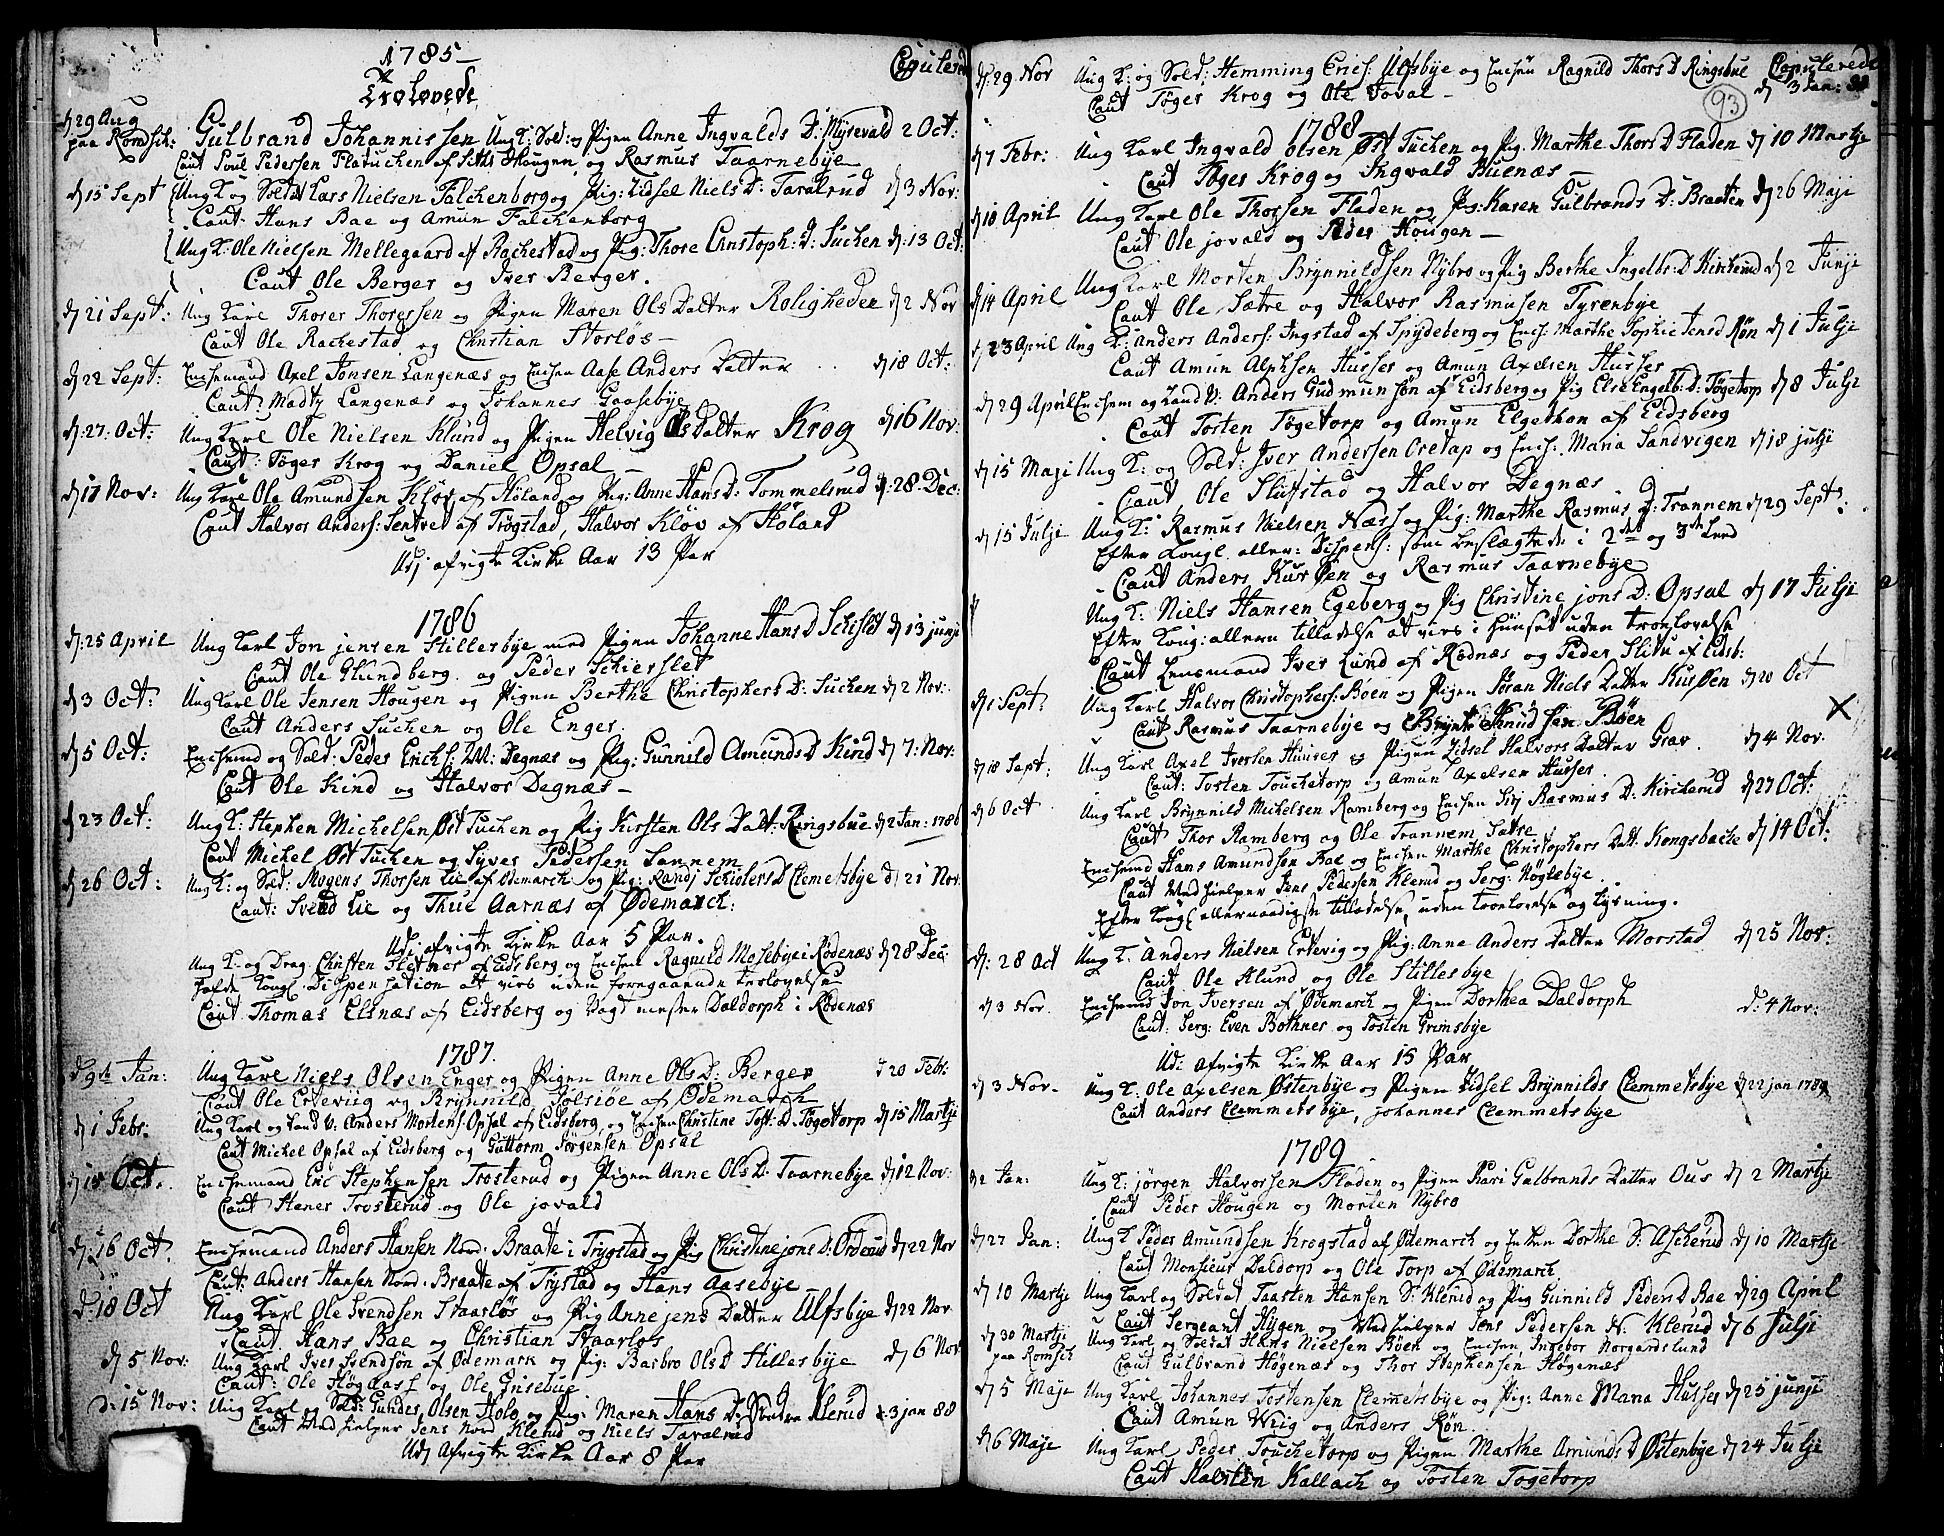 1785
Trolovede Copulered
d 29 Aug Gulbrand Johannissen Ung K: Sold: og Pigen Anne Ingvalds D: Myrevald 2 Oct:
paa Romsch: Caut Poul Pedersen Flatuchen af Hougen, og Rasmus Taarnebye
d 15 Sept Ung K og Soldat Lars Nielsen Falchenborg og Pig: Zidsel Niels D: Taralrud d 3 Nov:
Caut: Hans Bae og Amun Falchenborg
Ung K: Ole Nielsen Mellegaard af Rachestad og Pig: Thore Christoph: D: Tuchen d: 13 Oct:
Caut Ole Berger og Iver Berger.
d 21 Sept: Ung Karl Thorer Thorersen og Pigen Maren Ols Datter Roligheden d 2 Nov
Caut Ole Rachestad og Christian Storløs
d 22 Sept: Enchemand Axel Jonsen Langenæs og Enchen Aase Anders Datter d 18 Oct:
Caut: Madtz Langenæs og Johannes Gaasebye
d: 27: Oct: Ung Karl Ole Nielsen Klund og Pigen Helvig Ols Datter Krog d 16 Nov:
Caut: Tøger Krog og Daniel Opsal
d 17 Nov: Ung Karl Ole Amundsen Kløv af Høland og Pig: Anne Hans D: Tommelsrud d: 28 Dec:
Caut Halvor Anders: Sentvet af Trøgstad, Halvor Kløv af Høland
Udj afvigte Kirke Aar 13 Par
1786
d: 25 April Ung Karl Jon jensen Stillesbye med Pigen Johanne Hans D d 13 junj
Caut Ole Glundberg og Peder Schierslet
d 3 Oct: Ung Karl Ole Jensen Hougen og Pigen Berthe Christophers D: Tuchen d 2 Nov:
Caut Anders Tuchen og Ole Enger
d 5 Oct: Enchemd og Sold: Peder Erichs: M: Degnæs og Pig: Gunnild Amunds D Kind d 7: Nov:
Caut Ole Kind og Halvor Degnæs
d 23 Oct: Ung K: Stephen Michelsen Øst Tuchen og Pig Kirsten Ols Datt: Ringsbue d 2 Jan: 1786
Caut Michel Øst Tuchen og Syver Pedersen Sannem
d 26 Oct: Ung K: og Sold: Mogens Thorsen Lie af Ødemarch og Pig: Randj D Clemetsbye d 21 Nov.
Caut: Svend Lie og Thue Aarnæs af Ødemarch:
Udj afvigte Kirke Aar 5 Par.
Ung K: og Drag: Christen Fletner af Eidsberg og Enchen Ragnild Mosebye i Rødenæs d 28 Dec:
Kongl: Dispensation att vies uden foregaaende trolovelse
Caut Thomas Elsnæs af Eidsberg og Vagtmester Daldorph i Rødenæs
1787.
d 9de Jan: Ung Karl Niels Olsen Enger og Pigen Anne Ols D: Berger d 20 Febr:
Caut Ole Ertevig og Brynnild Solsiøe af Ødemarch
d 1 Febr. Ung Karl og Land V: Anders Mortens: Opsal af Eidsberg, og Enchen Christine Tost: D: Togetorp d 15 Martj
Caut Michel Opsal af Eidsberg og Guttorm Jørgensen Opsal
d 15 Oct. Enchemand Eric Stephensen Trosterud og Pigen Anne Ols D: Taarnebye d 12 Nov:
Caut Stener Trosterud og Ole jovald
d: 16 Oct. Enchemand Anders Hansen Nord: Braate i Trygstad og Pig Christine jons D: Orderud d 22 Nov
Caut: Anders Hansen Nord: Braate af Trystad og Hans Aasebye
d: 18 Oct Ung Karl Ole Svendsen Staarløs og Pig Anne jens Datter Ulfsbye d 22 Nov
Caut: Hans Bae og Christian Staarløs
d 5 Nov: Ung Karl Iver Svendsøn af Ødemark og Pig: Barbro Ols D Hillesbye d 6 Nov
Caut: Ole Høgaas og Ole Grisebue
d: 15 Nov: Ung Karl og Sold: Gunder Olsen Holo og Pig: Maren Hans D: Klerud d: 3 jan 88
Caut Medhielper Jens Nord Klerud og Niels Taralrud
Udj Afvigte Kirke Aar 8 Par
d: 29 Nov Ung K: og Sold: Hemming Erics: Ulfsbye og Enchen Ragnild Thors D Ringsbue Copulerede
Caut Tøger Krog og Ole Joval d 3 Jan: 88
93
1788
d 7 Febr: Ung Karl Ingvald Olsen Øst Tuchen og Pig: Marthe Thors D Fladen d 10 Martje
Caut Tøger Krog og Ingvald Buenæs
d 10 April Ung Karl Ole Thorsen Fladen og Pig: Karen Gulbrands D: Braaten d 26 Maje
Caut Ole jovald og Peder Hougen
d 14 April Ung Karl Morten Brynnildsen Nybro og Pig Berthe Ingelbr: D Kirkerud d 2 Junje
Caut Ole Sætre og Halvor Rasmusen Tyrenbye
d 23 April Ung K: Anders Anders: Ingstad af Spydeberg og Ench: Marthe Sophie Jens D Røn d 1 Julje
Caut Amun Alphsen Husser og Amun Axelsen Husser
d 29 April Enchem og Land V: Anders Gudmunsøn af Eidsberg og Pig Else Engelb: D: Togetorp d 8 Julj
Caut Tosten Togetorp og Amun Elgethon af Eidsberg
d 15 Maji Ung K: og Sold: Iver Andersen Oretap og Ench: Maria Sandvigen d 18 julje
Caut Ole Slufstad og Halvor Degnæs
d 15 Julje Ung K: Rasmus Nielsen Næss og Pig: Marthe Rasmus D: Trannem d 29 Sept:
Efter Kongl: aller: Dispens: som beslægtede i 2det og 3de Leed
Caut Anders Kurøen og Rasmus Taarnebye
Ung K: Niels Hansen Egeberg og Pig Christine jons D: Opsal d 17 Julje
Efter Kong: allern tilladelse at vies i Huuset uden troelovelse
Caut Lensmand Iver Lund af Rødnæs og Peder Slitu af Eidsb:
d 1 Sept: Ung Karl Halvor Christophers: Bøen og Pigen Joran Niels Datter Kusøen d 20 Oct
Caut Rasmus Taarnebye og Brynte Knudsen Bøen X
d 18 Sept: Ung Karl Axel Iversen Huuser og Pigen Zidsel Halvors Datter Grav d 4 Nov.
Caut: Tosten Touchetorp og Amun Axelsen Husser.
d 6 Oct Ung Karl Brynnild Michelsen Ramberg og Enchen Sirj Rasmus D: Kirckerud d 27 Oct:
Caut Thor Ramberg og Ole Trannem Sætre
Enchemd Hans Amundsen Bae og Enchen Marthe Christophers Datt: Kongsbacke d 14 Oct:
Caut Medhielper Jens Pedersen Klerud og Serg: Høglebye.
Efter Kongl allernaadigste tilladelse, uden troelovelse og Lysning.
d: 28 Oct Ung K: Anders Nielsen Ertevig og Pig: Anne Anders Datter Morstad d 25 Nov:
Caut Ole Klund og Ole Stillesbye
d 3 Nov. Enchemd Jon Iversen af Ødemarch og Pigen Dorthea Daldorph d: 4 Nov:
Caut: Serg: Even Bothner og Tosten Grimsbye
Udi afvigte Kirke Aar 15 Par
d 3 Nov. Ung K: Ole Axelsen Østenbye og Pigen Zidsel Brynnilds Clemmetsbye d 22 jan 1789
Caut Anders Clemmetsbye, Johannes Clemmetsbye
1789
d 2 Jan: Ung K: jørgen Halvorsen Fladen og Pigen Kari Gulbrands Datter Ous d 2 Martje
Caut Peder Hougen og Morten Nybro
d 27 Jan: Ung K Peder Amundsen Krogstad af Ødemarch og Enken Dorthe S: Ascherud d 10 Martje
Caut Monsieur Daldorp og Ole Torp af Ødemarch
d 10 Martje Ung Karl og Soldat Taasten Hansen S: Klerud og Pig Gunnild Peders D Bae d 29 April
Caut Sergeant Hygen og Medhielper Jens Pedersen N. Klerud d 6 Julji
d 30 Martje Ung Karl og Soldat Hans Nielsen Bøen og Enchen Ingebor Norgardslund
paa Romsch Caut Gulbrand Høgenæs og Thor Stephensen Høgenæs
d 5 Maje Ung Karl Johannes Tostensen Clemetsbye og Pig: Anne Maria Husser d 25 junje
Caut Amun Wiig og Anders Røn.
d 6 Maje Ung Karl Peder Touchetorp og Pigen Marthe Amunds D Østenbye d 24 Julje
Caut Halsten Kallach og Tosten Togetorp